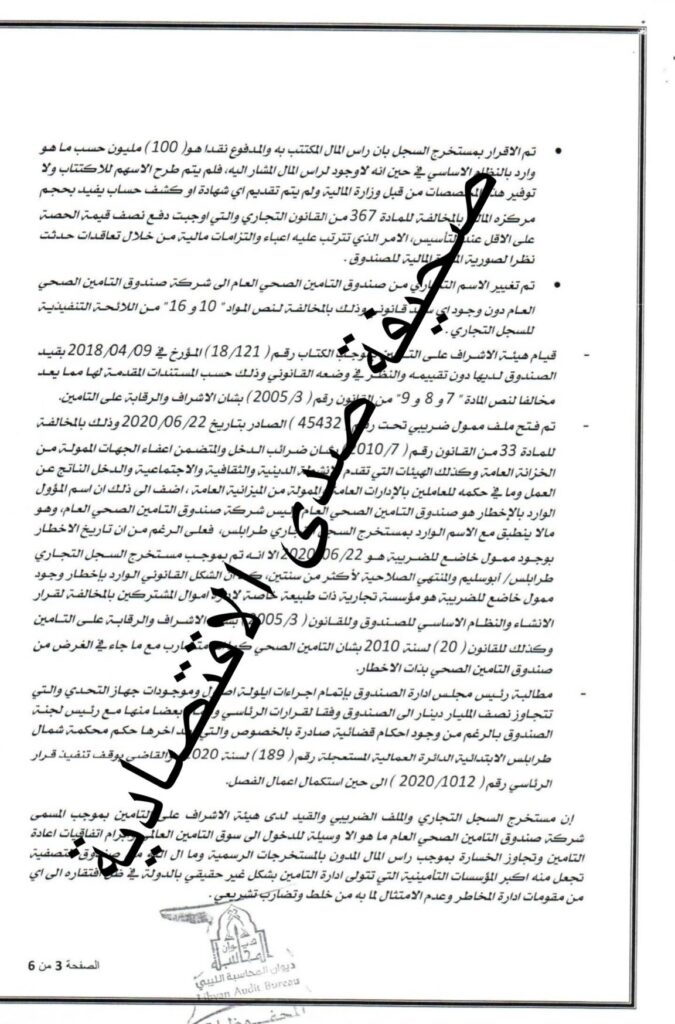 • تم الاقرار بمستخرج السجل بان راس المال المكتتب به والمدفوع نقدا هو( 100 ) مليون حسب ما هو
وارد بالنظام الاساسي في حين انه لاوجود لراس المال المشار اليه، فلم يتم طرح الاسهم للاكتتاب ولا
توفير هذه المخصصات من قبل وزارة المالية ولم يتم تقديم اي شهادة او كشف حساب يفيد بحجم
مركزه المالي بالمخالفة للمادة 367 من القانون التجاري والتي اوجبت دفع نصف قيمة الحصة
على الاقل عند التأسيس، الامر الذي تترتب عليه اعباء والتزامات مالية من خلال تعاقدات حدثت
نظرا لصورية المالية للصندوق .
• تم تغيير الاسم التجاري من صندوق التامين الصحي العام الى شركة صندوق التامين الصحي
العام دون وجود اي سند قانوني وذلك بالمخالفة لنص المواد" 10 و 16" من اللائحة التنفيذية
للسجل التجاري .
- قيام هيئة الاشراف على التامين بموجب الكتاب رقم ( 18/121) المؤرخ في 2018/04/09 بقيد
الصندوق لديها دون تقييمه والنظر في وضعه القانوني وذلك حسب المستندات المقدمة لها مما يعد
مخالفا لنص المادة" 7 و 8 و 9" من القانون رقم ( 2005/3) بشان الاشراف والرقابة على التامين.
- تم فتح ملف ممول ضريبي تحت رقم ( 45432) الصادر بتاريخ 2020/06/22 وذلك بالمخالفة
للمادة 33 من القانون رقم ( 2010/7) بشان ضرائب الدخل والمتضمن اعفاء الجهات الممولة من
الخزانة العامة وكذلك الهيئات التي تقدم الانشطة الدينية والثقافية والاجتماعية والدخل الناتج عن
العمل وما في حكمه للعاملين بالإدارات العامة الممولة من الميزانية العامة ، اضف الى ذلك ان اسم المؤول
الوارد بالإخطار هو صندوق التامين الصحي العام وليس شركة صندوق التامين الصحي العام، وهو
مالا ينطبق مع الاسم الوارد بمستخرج السجل التجاري طرابلس، فعلى الرغم من ان تاريخ الاخطار
بوجود ممول خاضع للضريبة هو 2020/06/22 الا انه تم بموجب مستخرج السجل التجاري
طرابلس/ أبوسليم والمنتهي الصلاحية لأكثر من سنتين، كما ان الشكل القانوني الوارد بإخطار وجود
ممول خاضع للضريبة هو مؤسسة تجارية ذات طبيعة خاصة لإدارة اموال المشتركين بالمخالفة لقرار
الانشاء والنظام الاساسي للصندوق وللقانون ( 2005/3) بشان الاشراف والرقابة على التامين
وكذلك للقانون ( 20) لسنة 2010 بشان التامين الصحي متضارب مع ما جاء في الغرض من
صندوق التامين الصحي بذات الاخطار.
- مطالبة رئيس مجلس ادارة الصندوق بإتمام اجراءات ايلولة اصول وموجودات جهاز التحدي والتي
تتجاوز نصف المليار دينار الى الصندوق وفقا لقرارات الرئاسي بعضا منها مع رئيس لجنة
الصندوق بالرغم من وجود احكام قضائية صادرة بالخصوص والتي اخرها حكم محكمة شمال
طرابلس الابتدائية الدائرة العمالية المستعجلة رقم ( 189) لسنة 2020 والقاضي بوقف تنفيذ قرار
الرئاسي رقم ( 2020/1012 ) الى حين استكمال اعمال الفصل.
إن مستخرج السجل التجاري والملف الضريبي والقيد لدى هيئة الاشراف على التامين بموجب المسمى
شركة صندوق التامين الصحي العام ما هو الا وسيلة للدخول الى سوق التامين العالمي وابرام اتفاقيات اعادة
التامين وتجاوز الخسارة بموجب راس المال المدون بالمستخرجات الرسمية وما ال اليه من صندوق التصفية
تجعل منه اكبر المؤسسات التأمينية التي تتولى ادارة التامين بشكل غير حقيقي بالدولة في ظل افتقاره الى اي
من مقومات ادارة المخاطر وعدم الامتثال لما به من خلط وتضارب تشريعي.
صحيفة صدى الاقتصادية
ديوان المحاسبة
ديوان المحاسبة الليبي
Libyan Audit Bureau
المحفوظات
الصفحة 3 من 6